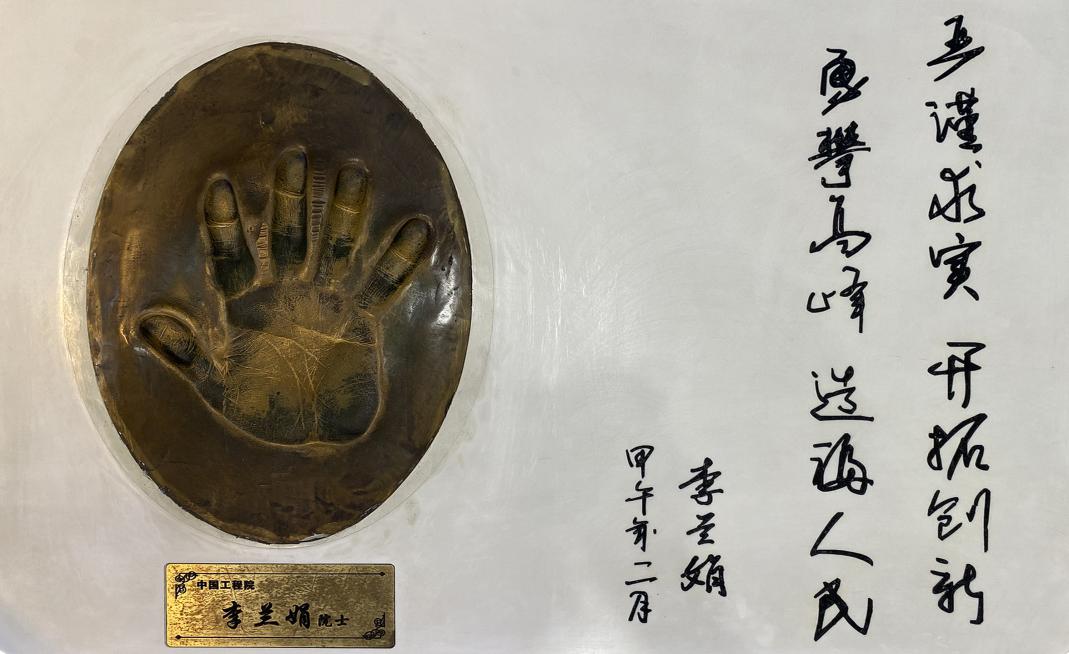 严谨求实 开拓创新
勇攀高峰 造福人民
李兰娟
甲午年二月
中国工程院
李兰娟院士